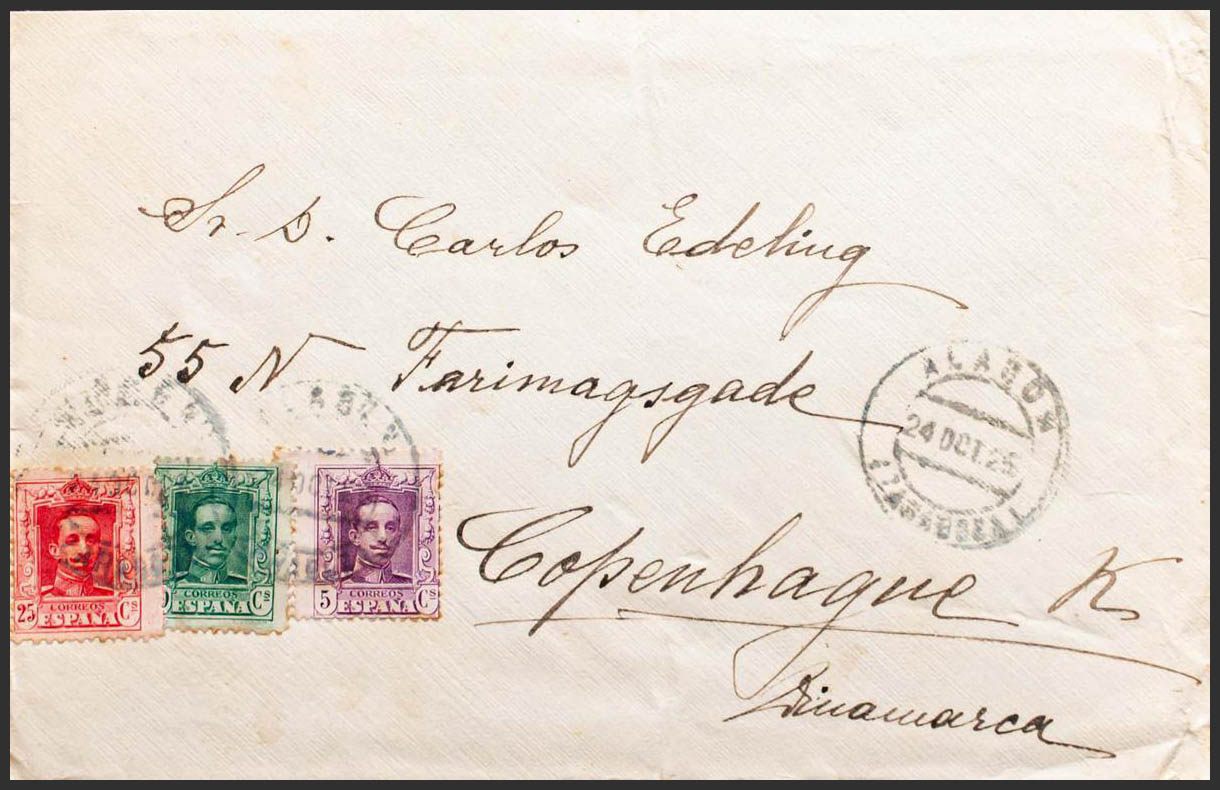 Sr. D. Carlos Edeling
55 N Farimagsgade
Copenhague K
Dinamarca
ALAGÓN
24 OCT 25
(ZARAGOZA)
25 CORREOS Cs
ESPAÑA
CORREOS Cs
ESPAÑA
5 CORREOS Cs
ESPAÑA